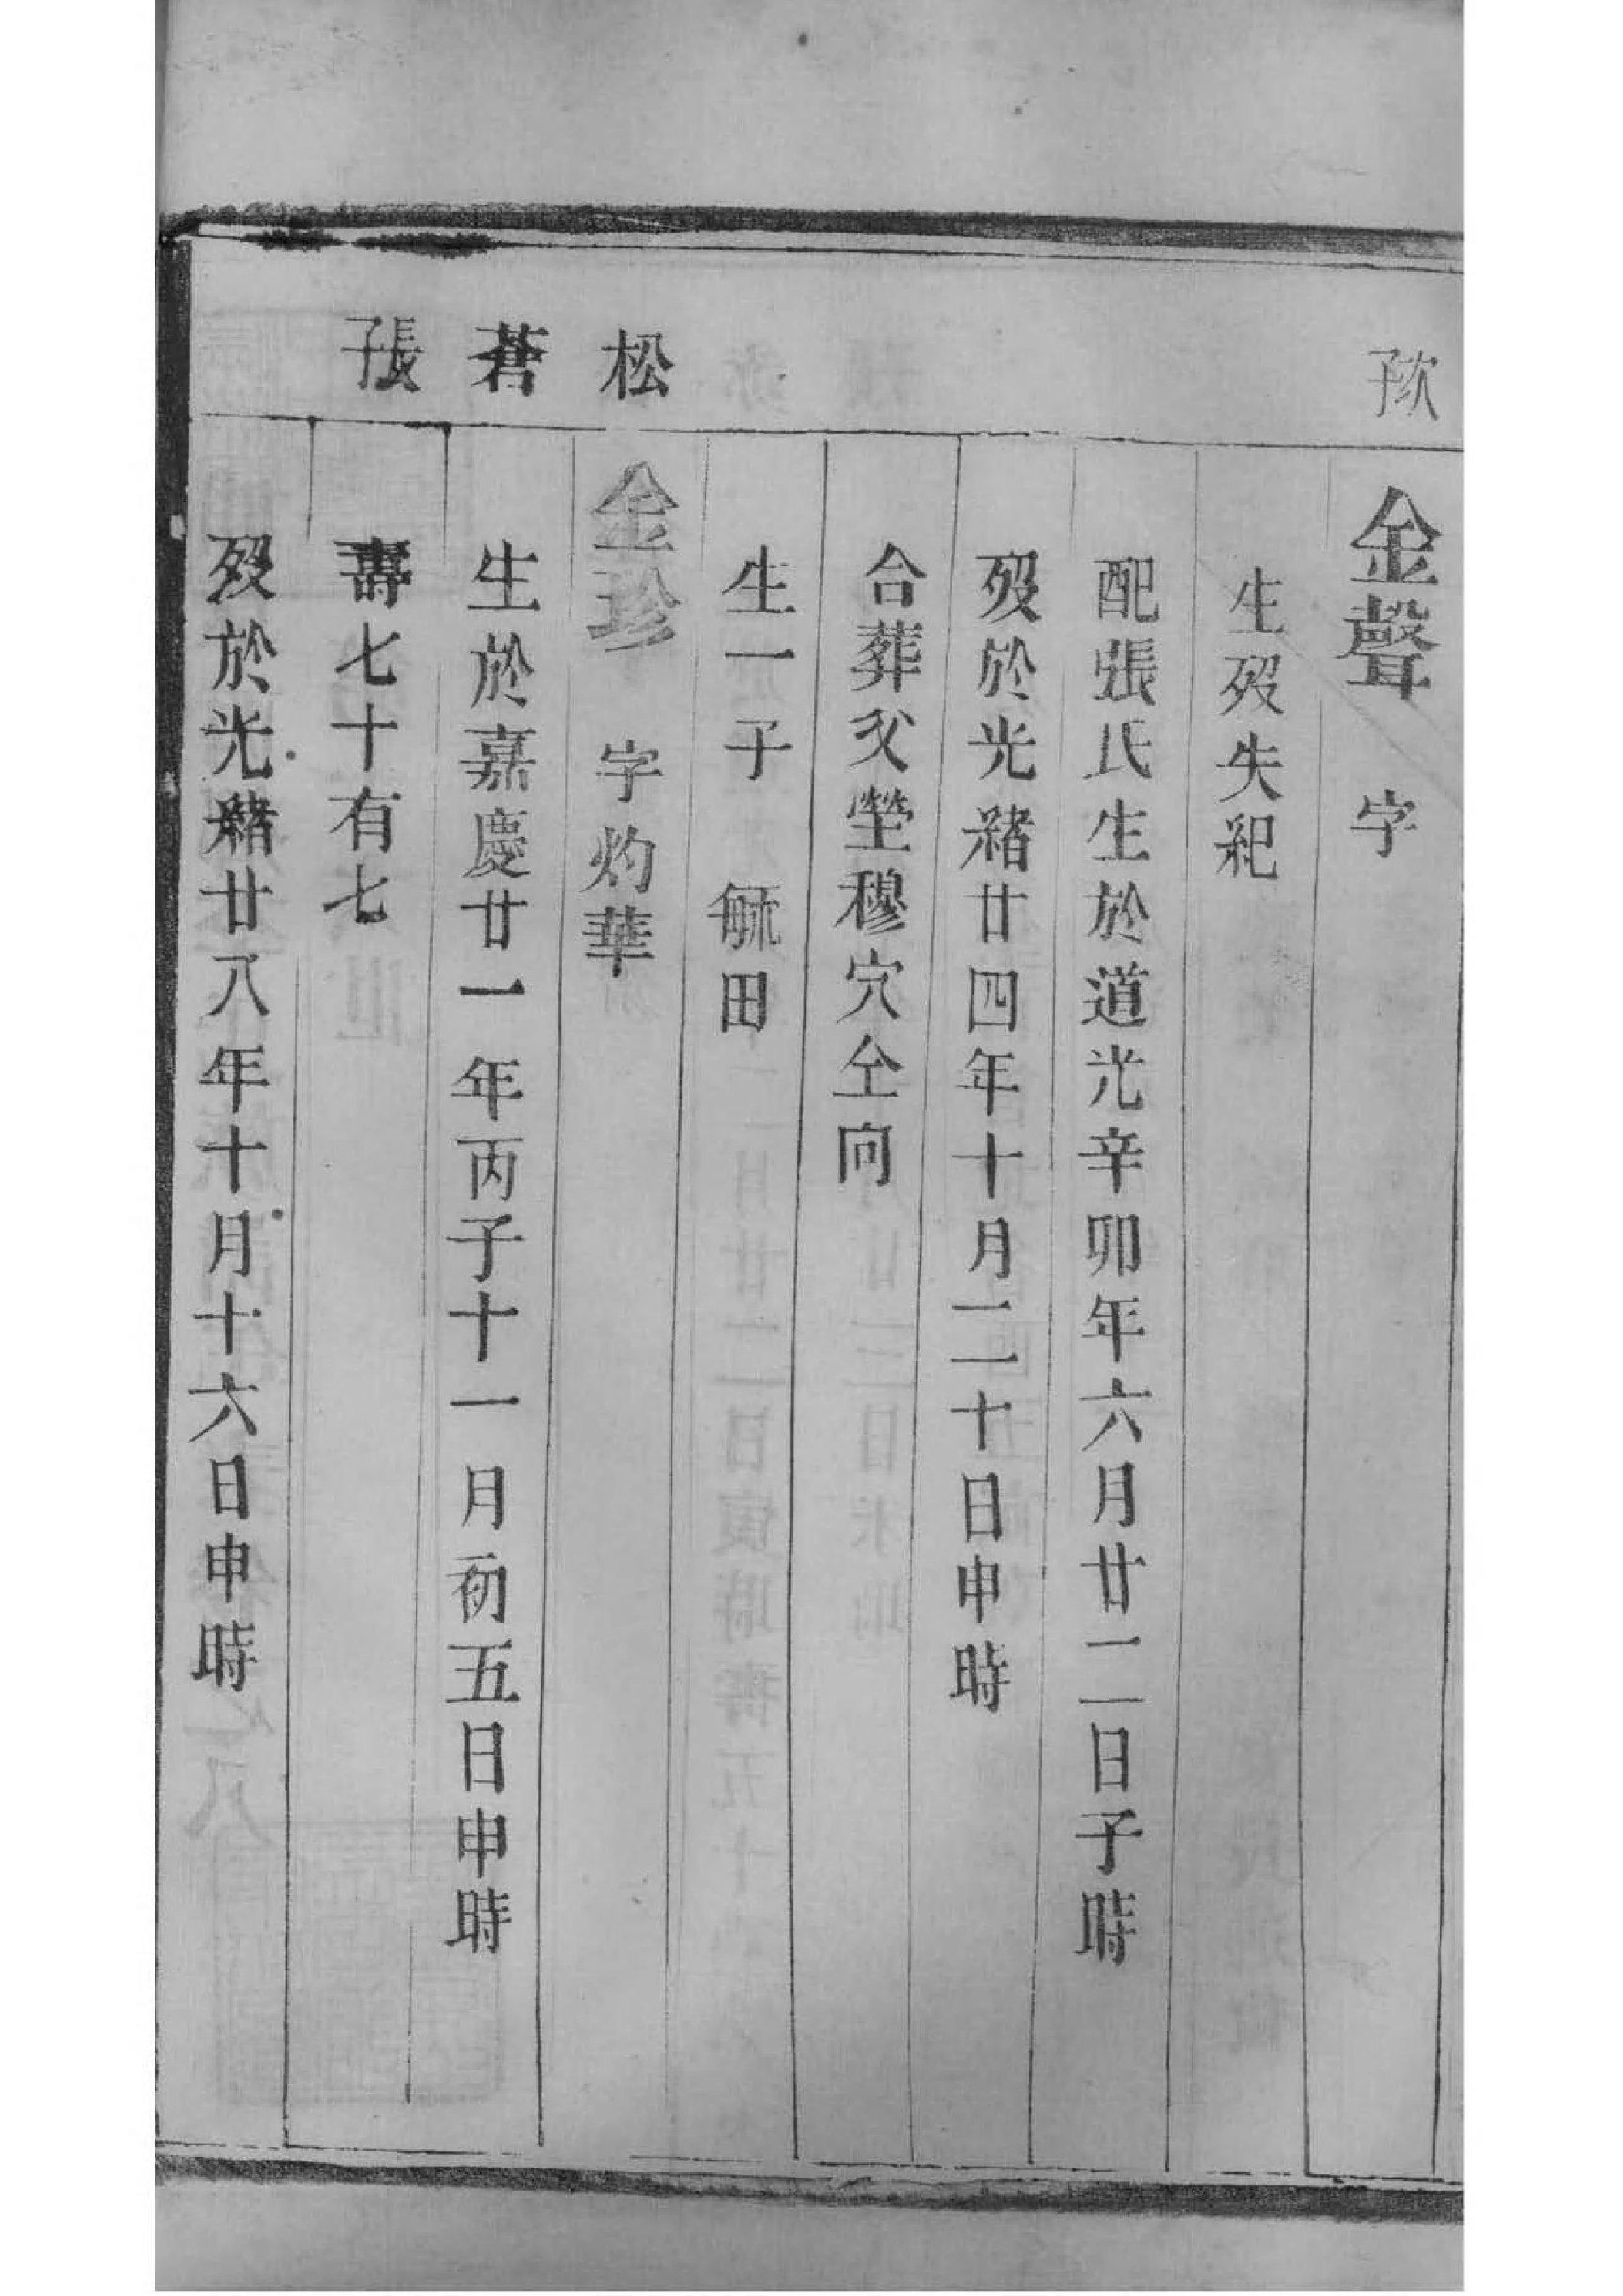 次子
金聲 字
生歿失紀
配張氏生於道光辛卯年六月廿二日子時
歿於光緒廿四年十月二十日申時
合葬父塋穆穴仝向
生一子 毓田
松
金珍 字灼華
蒼
生於嘉慶廿一年丙子十一月初五日申時
長子
壽七十有七
歿於光緒廿八年十月十六日申時